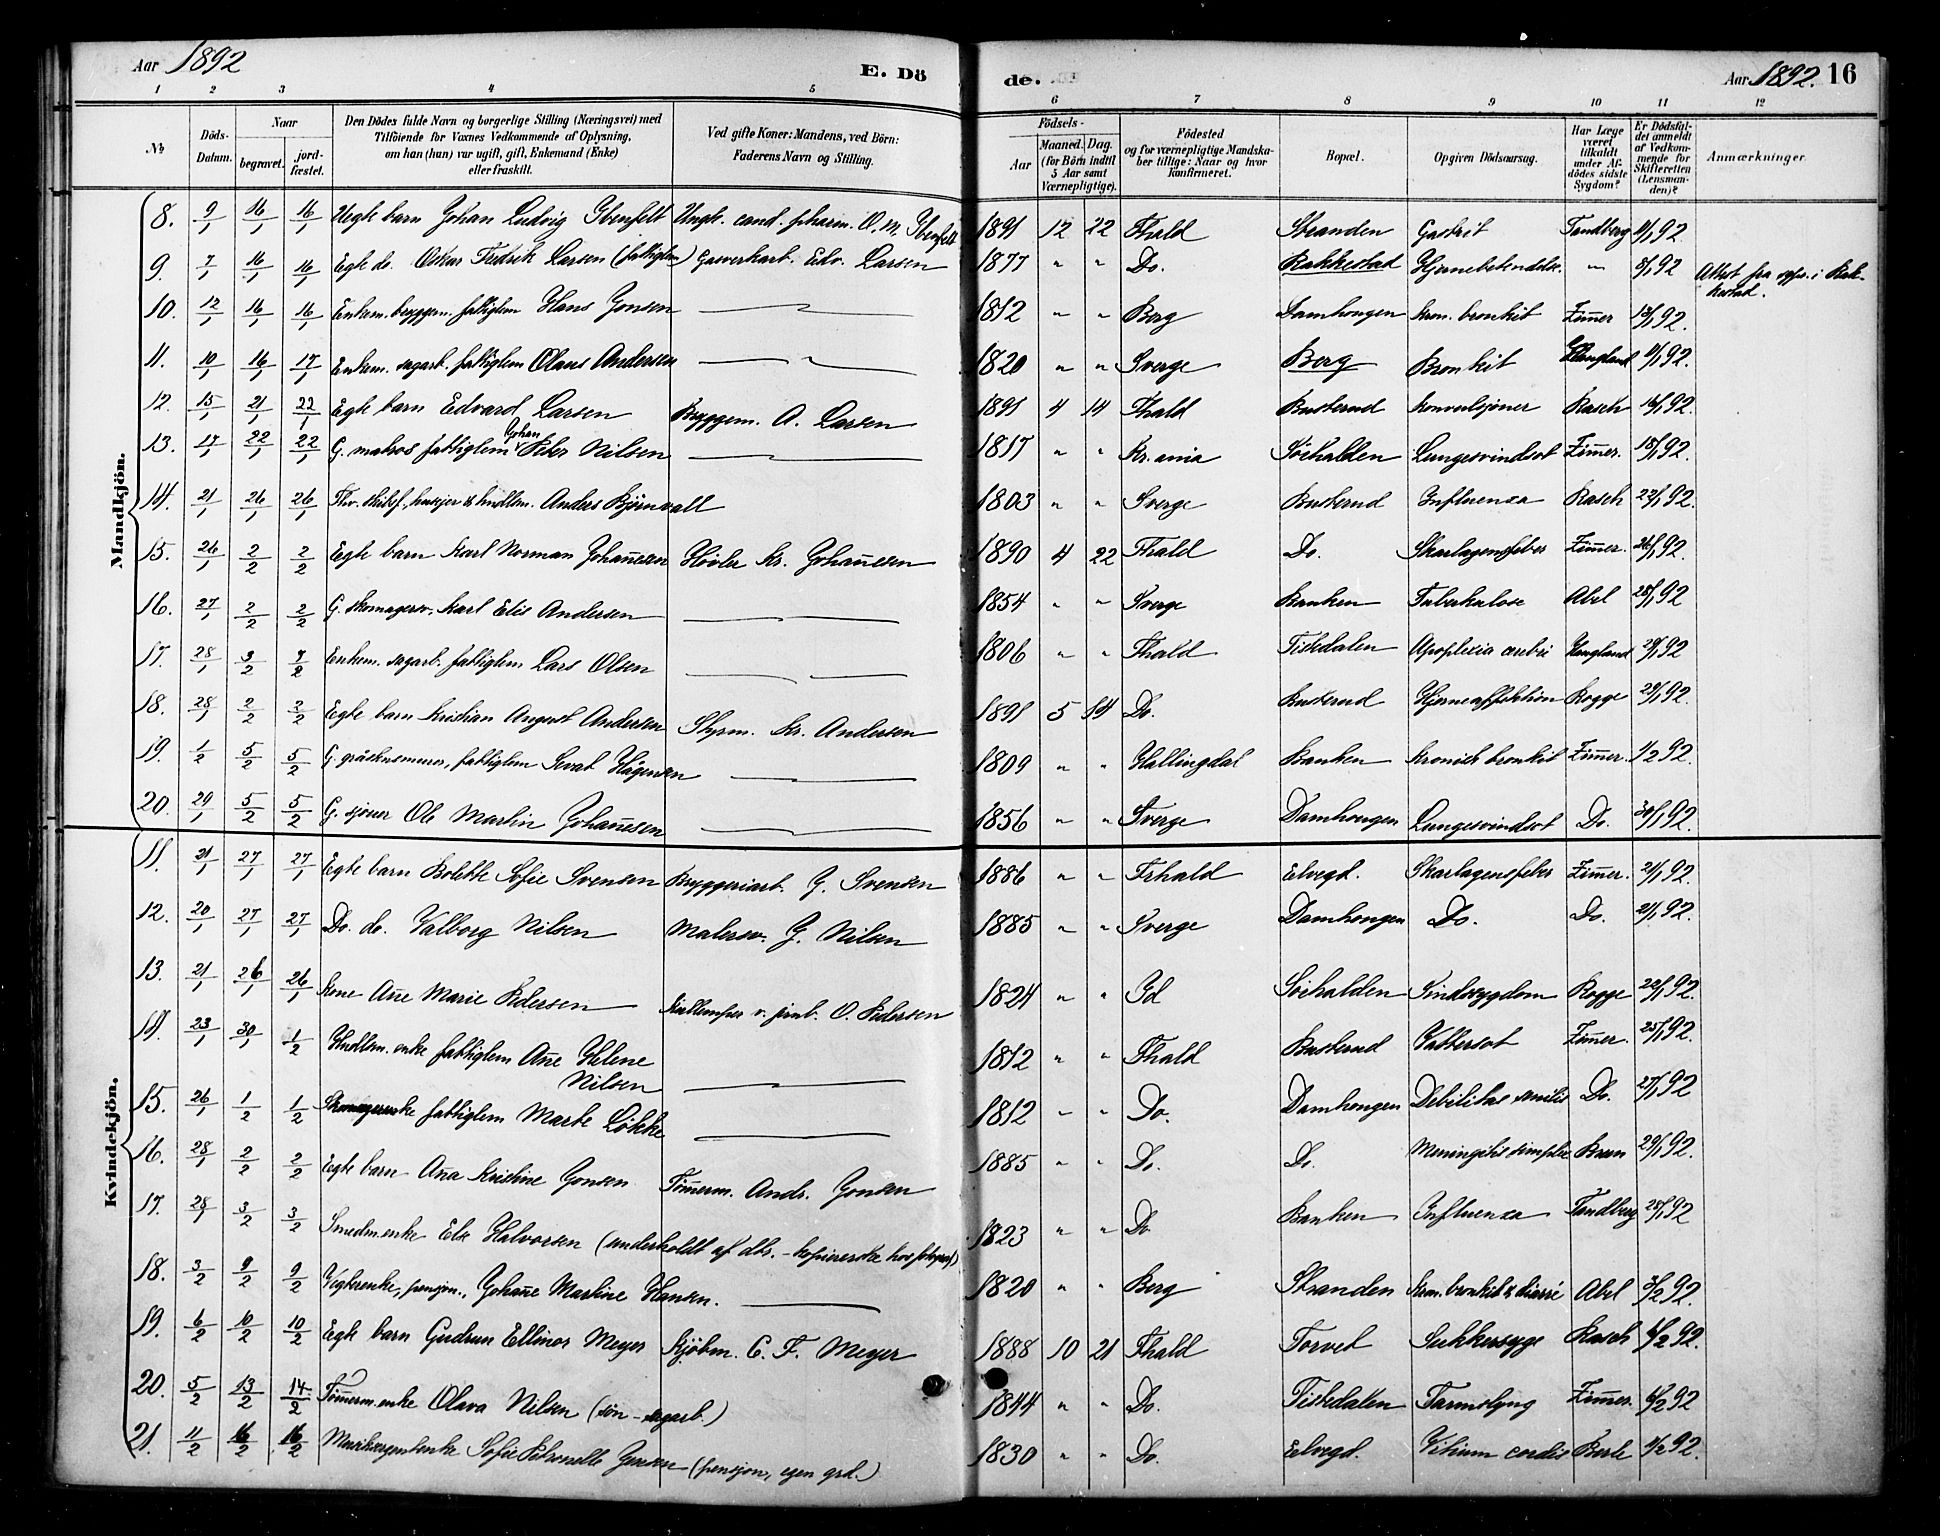 Aar 1892
E. Dö
de.
Aar 1892. 16
1 2 3 4 5 6 7 8 9 10 11 12
№
Döds-Datum.
Naar
begravet.
jord-fæstet.
Den Dödes fulde Navn og borgerlige Stilling (Næringsvei) med
Tilföiende for Voxnes Vedkommende af Oplysning,
om han (hun) var ugift, gift, Enkemand (Enke)
eller fraskilt.
Ved gifte Koner: Mandens, ved Börn:
Faderens Navn og Stilling.
Födsels-
Aar
Maaned. Dag.
(for Börn indtil
5 Aar samt
Værnepligtige).
Födested
og for værnepligtige Mandska-
ber tillige: Naar og hvor
konfirmeret.
Bopæl.
Opgiven Dödsaarsag.
Har Læge
været
tilkaldt
under Af-
dödes sidste
Sygdom?
Er Dödsfal-
det anmeldt
af Vedkom-
mende for
Skifteretten
(Lensman-
den)?
Anmærkninger.
Mandkjön.
8. 9/1 16/1 16/1 Uegte barn Johan Ludvig Ibenfelt Ungk. cand. pharm. O. M. Ibenfelt 1891 12 22 Fhald Stranden Gastrit Tandberg 11/1 92.
9. 7/1 16/1 16/1 Egte do. Oskar Fredrik Larsen (fattiglem) Gasverkarb. Edv. Larsen 1877 " " Do. Rakkestad Hjernebetændelse. — 8/1 92 Attest fra sogpr. i Rakkestad.
10. 12/1 16/1 16/1 Enkem. bryggem. fattiglem Hans Jonsen 1812 " " Berg Damhougen kron. bronkit Zimer 13/1 92.
11. 10/1 16/1 17/1 Enkem. sagarb. fattiglem Olaus Andersen 1820 " " Sverge Berg Bronkit Haugland 11/1 92.
12. 15/1 21/1 22/1 Egte barn Edvard Larsen Bryggem. A. Larsen 1891 4 14 Fhald Busterud konvulsjoner Rasch 16/1 92.
13. 17/1 22/1 22/1 G. matros fattiglem Johan Peter Nilsen 1817 " " Kr.ania Söehalden Lungesvindsot Zimer. 18/1 92.
14. 21/1 26/1 26/1 Anders Bjørnvall 1803 " " Sverge Busterud Influenza Rasch 22/1 92.
15. 26/1 2/2 2/2 Egte barn Karl Norman Johanesen Høvler Kr. Johanesen 1890 4 22 Fhald Do. Skarlagensfeber Zimer. 26/1 92.
16. 27/1 2/2 2/2 G. skomagersv. Karl Elis Andersen 1854 " " Sverge Banken Tuberkulose Abel 28/1 92
17. 28/1 3/2 7/2 Enkem. sagarb. fattiglem Lars Olsen 1806 " " Fhald Tistedalen Apoplexia cerebri Haugland 29/1 92
18. 28/1 2/2 2/2 Egte barn Kristian August Andersen Styrm. Kr. Andersen 1891 5 14 Do. Busterud Hjerneaffektion Rogge 29/1 92.
19. 1/2 5/2 5/2 G. gråstensmurer, fattiglem Sevat Hågensen 1809 " " Hallingdal Banken kronisk bronkit Zimer. 1/2 92.
20. 29/1 5/2 5/2 G. sjouer Ole Martin Johanesen 1856 " " Sverge Damhougen Lungesvindsot Do. 30/1 92.
Kvindekjön.
11. 21/1 27/1 27/1 Egte barn Bolette Sofie Svensen Bryggeriarb. J. Svensen 1886 " " Frhald Elvegd. Skarlagensfeber Zimer. 21/1 92.
12. 20/1 27/1 27/1 Do. do. Valborg Nilsen Malersv. J. Nilsen 1885 " " Sverge Damhougen Do. Do. 21/1 92.
13. 21/1 26/1 26/1 Kone Ane Marie Pedersen Kullemper v. jernb. O. Pedersen 1824 " " Id Söehalden Sindssygdom Rogge 22/1 92.
14. 23/1 30/1 1/2 Husllem. enke fattiglem Ane Helene Nilsen 1812 " " Fhald Busterud Vattersot Zimer. 25/1 92.
15. 26/1 1/2 1/2 Skomagerenke fattiglem Marte Løkke 1812 " " Do. Damhougen Debilitas senilis Do. 27/1 92
16. 28/1 2/2 2/2 Egte barn Ana Kristine Jonsen Tömerm. Andr. Jonsen 1885 " " Do. Do. Meningitis simplex Brun 29/1 92.
17. 28/1 3/2 3/2 Smedm.enke Else Halvorsen (underholdt af dtr. – kopiererske hos fotograf) 1823 " " Do Banken Influenza Tandberg 28/1 92
18. 3/2 9/2 9/2 Vegterenke, pensjon., Johane Martine Hansen. 1820 " " Berg Stranden kron. bronkit & diarré Abel 3/2 92.
19. 6/2 10/2 10/2 Egte barn Gudrun Ellinor Meyer Kjöbm. C. F. Meyer 1888 10 21 Fhald Torvet Sukkersyge Rasch 6/2 92.
20. 5/2 13/2 14/2 Tömerm.enke Olava Nilsen (sön – sagarb.) 1844 " " Do. Tistedalen Tarmslyng Zimer. 6/2 92
21. 11/2 16/2 16/2 Sofie Petronelle Jensen (pensjon, egen grd.) 1830 " " Do. Elvegd. Vitium cordis 11/2 92.